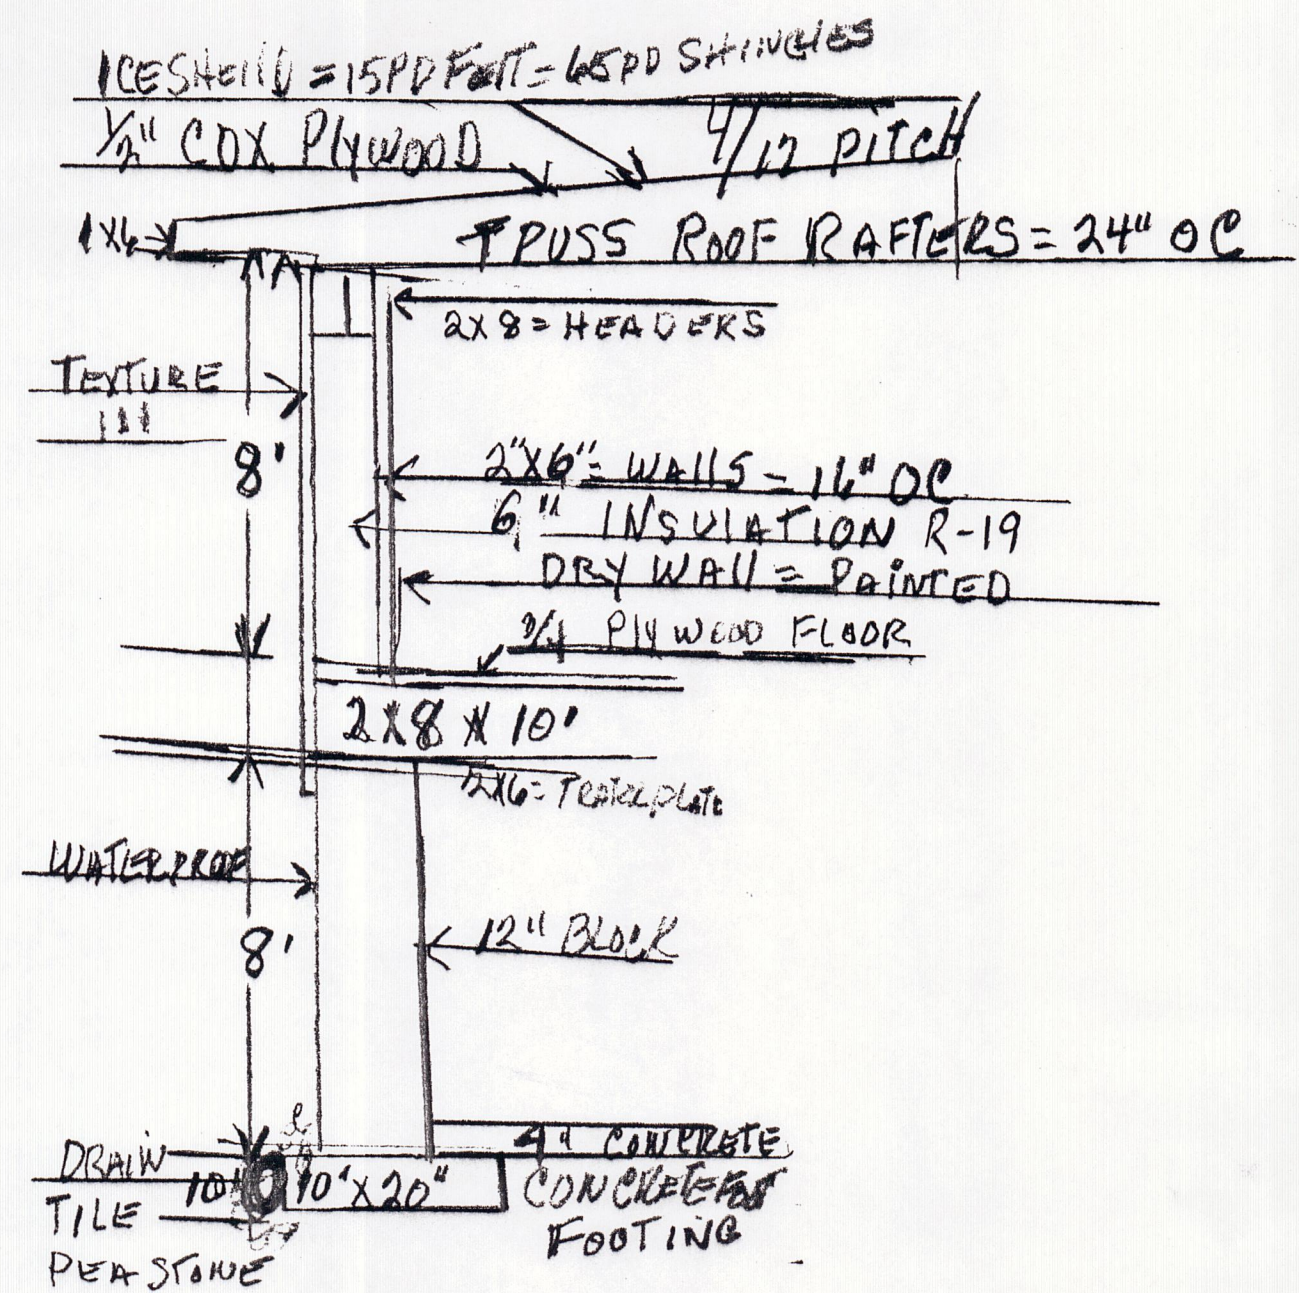 ICE SHEILD = 15PD FELT = 65PD SHINGLES
1/2" CDX PLYWOOD
4/12 PITCH
1X6
TRUSS ROOF RAFTERS = 24" OC
2X8 = HEADERS
TEXTURE
111
8'
2"X6" = WALLS = 16" OC
6" INSULATION R-19
DRY WALL = PAINTED
3/4 PLYWOOD FLOOR
2X8X10'
2X6 =
WATERPROOF
12" BLOCK
8'
4" CONCRETE
DRAIN
10" 10" X 20" CONCRETE
TILE
FOOTING
PEA STONE